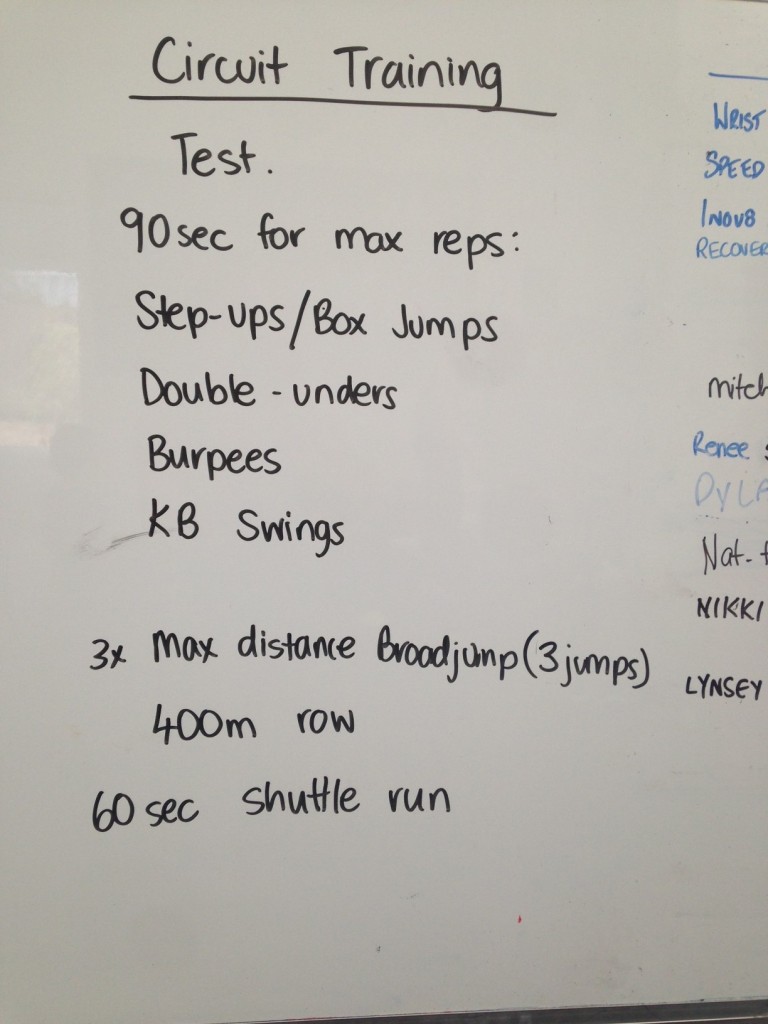 Circuit Training
Test.
90sec for max reps:
Step-ups/Box Jumps
Double-unders
Burpees
KB Swings
3x Max distance Broadjump (3 jumps)
400m row
60 sec shuttle run
WRIST
SPEED
INOV8
RECOVER
mitch
Renee
DYLA
Nat-
NIKKI
LYNSEY